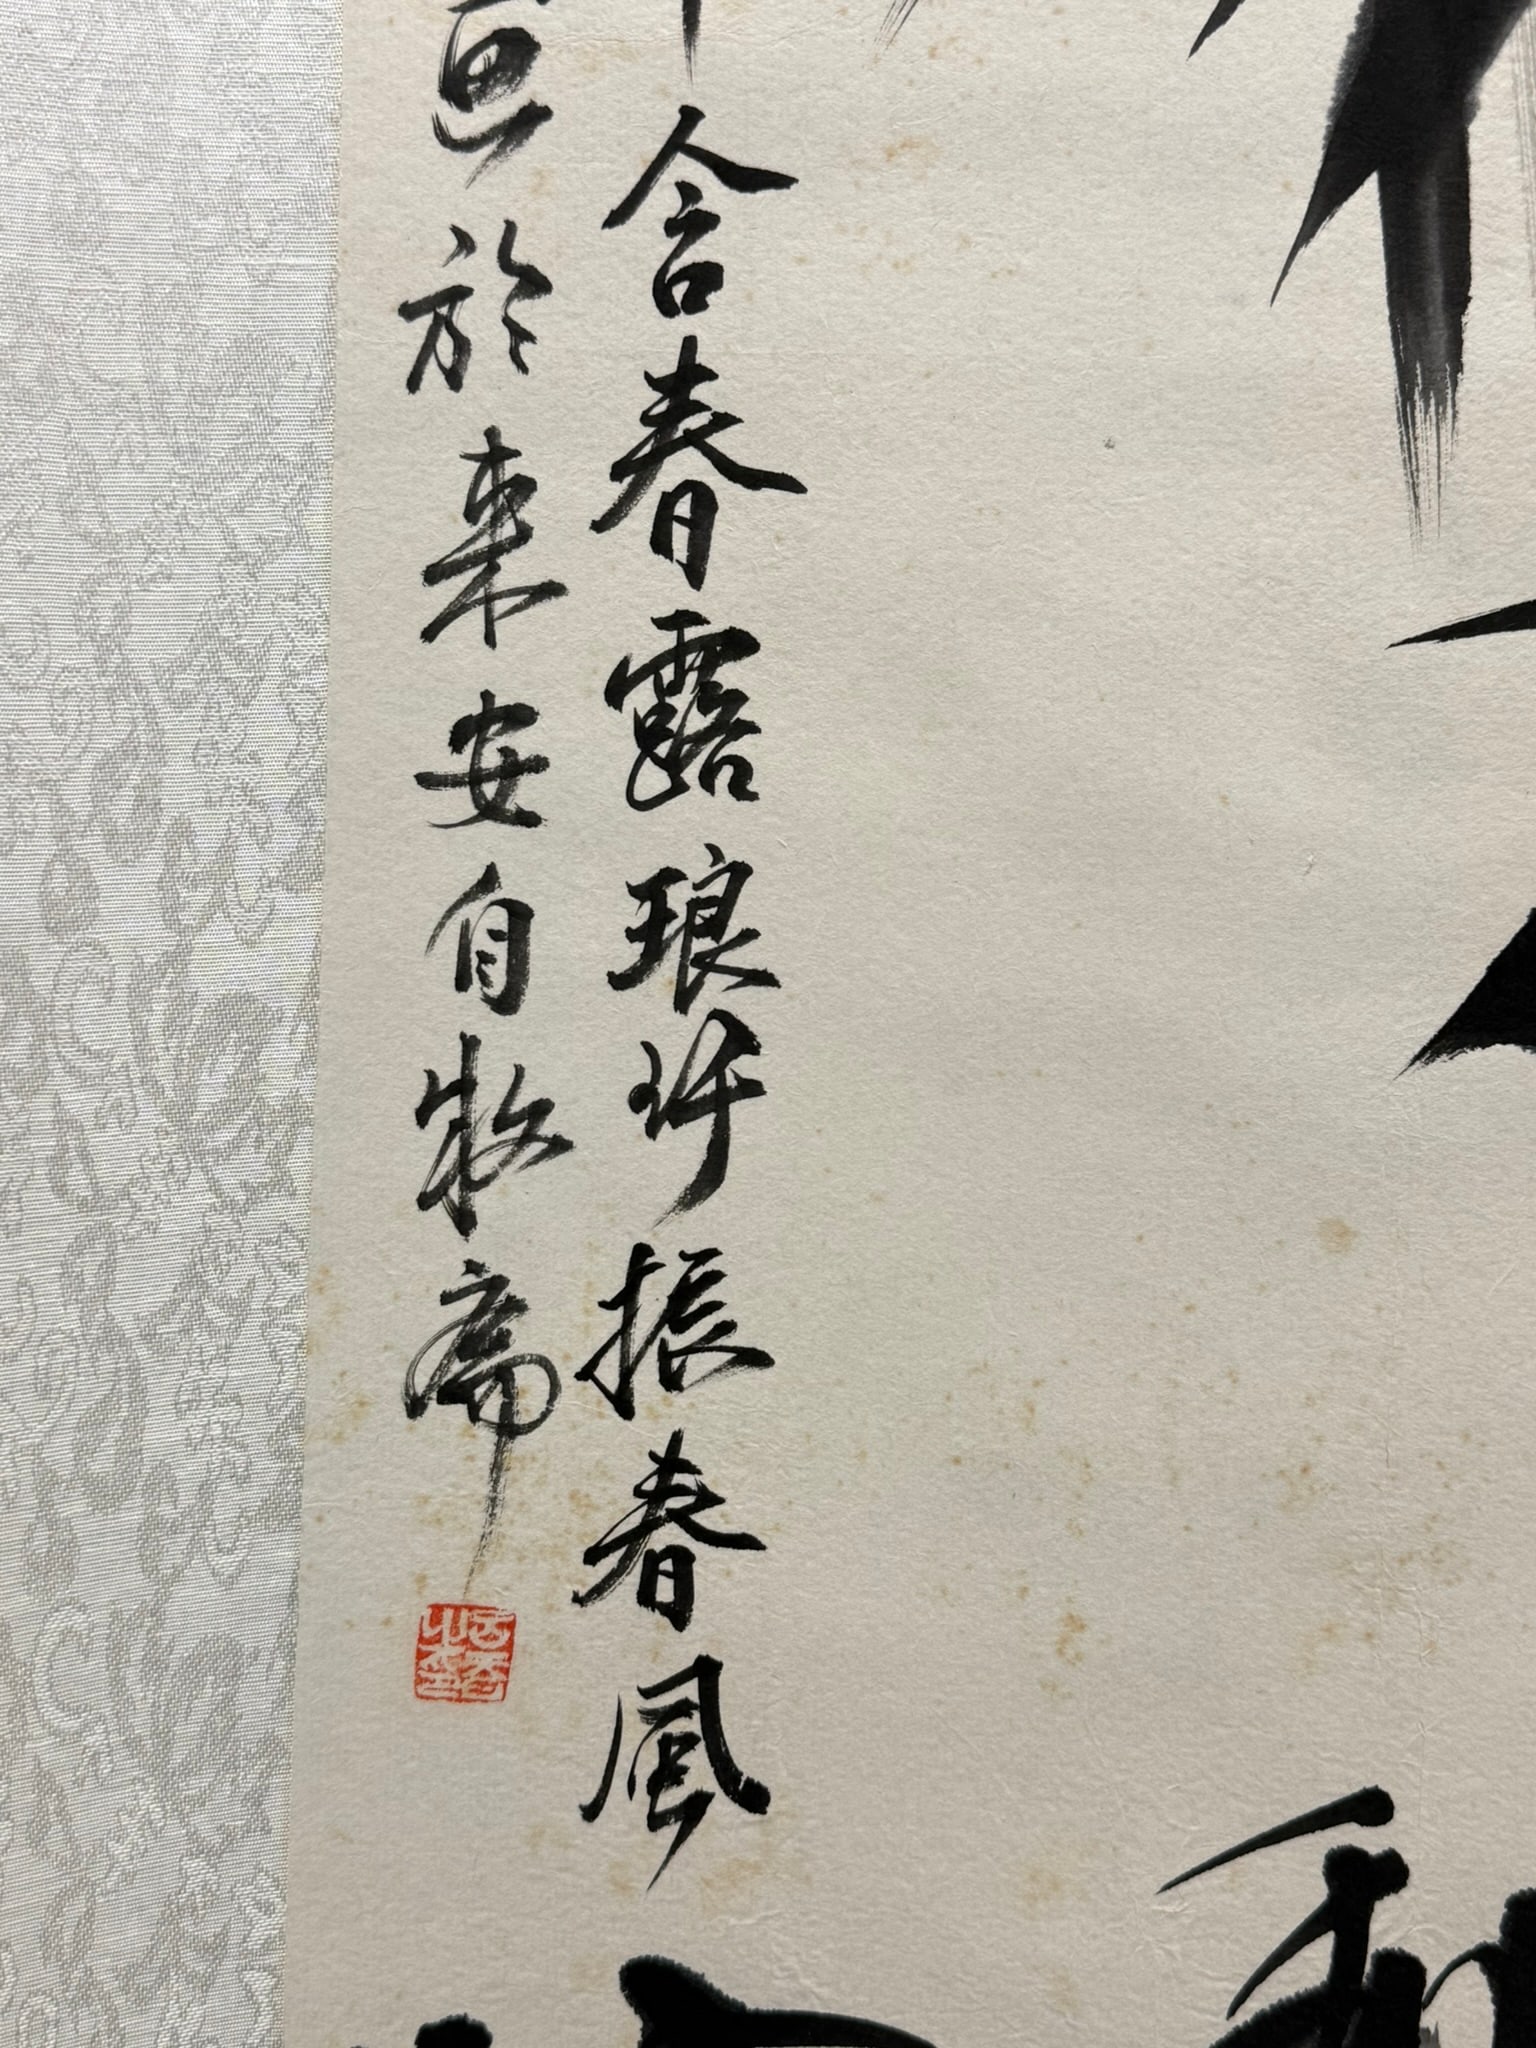 含春露琅玕振春風
画於来安自牧齋